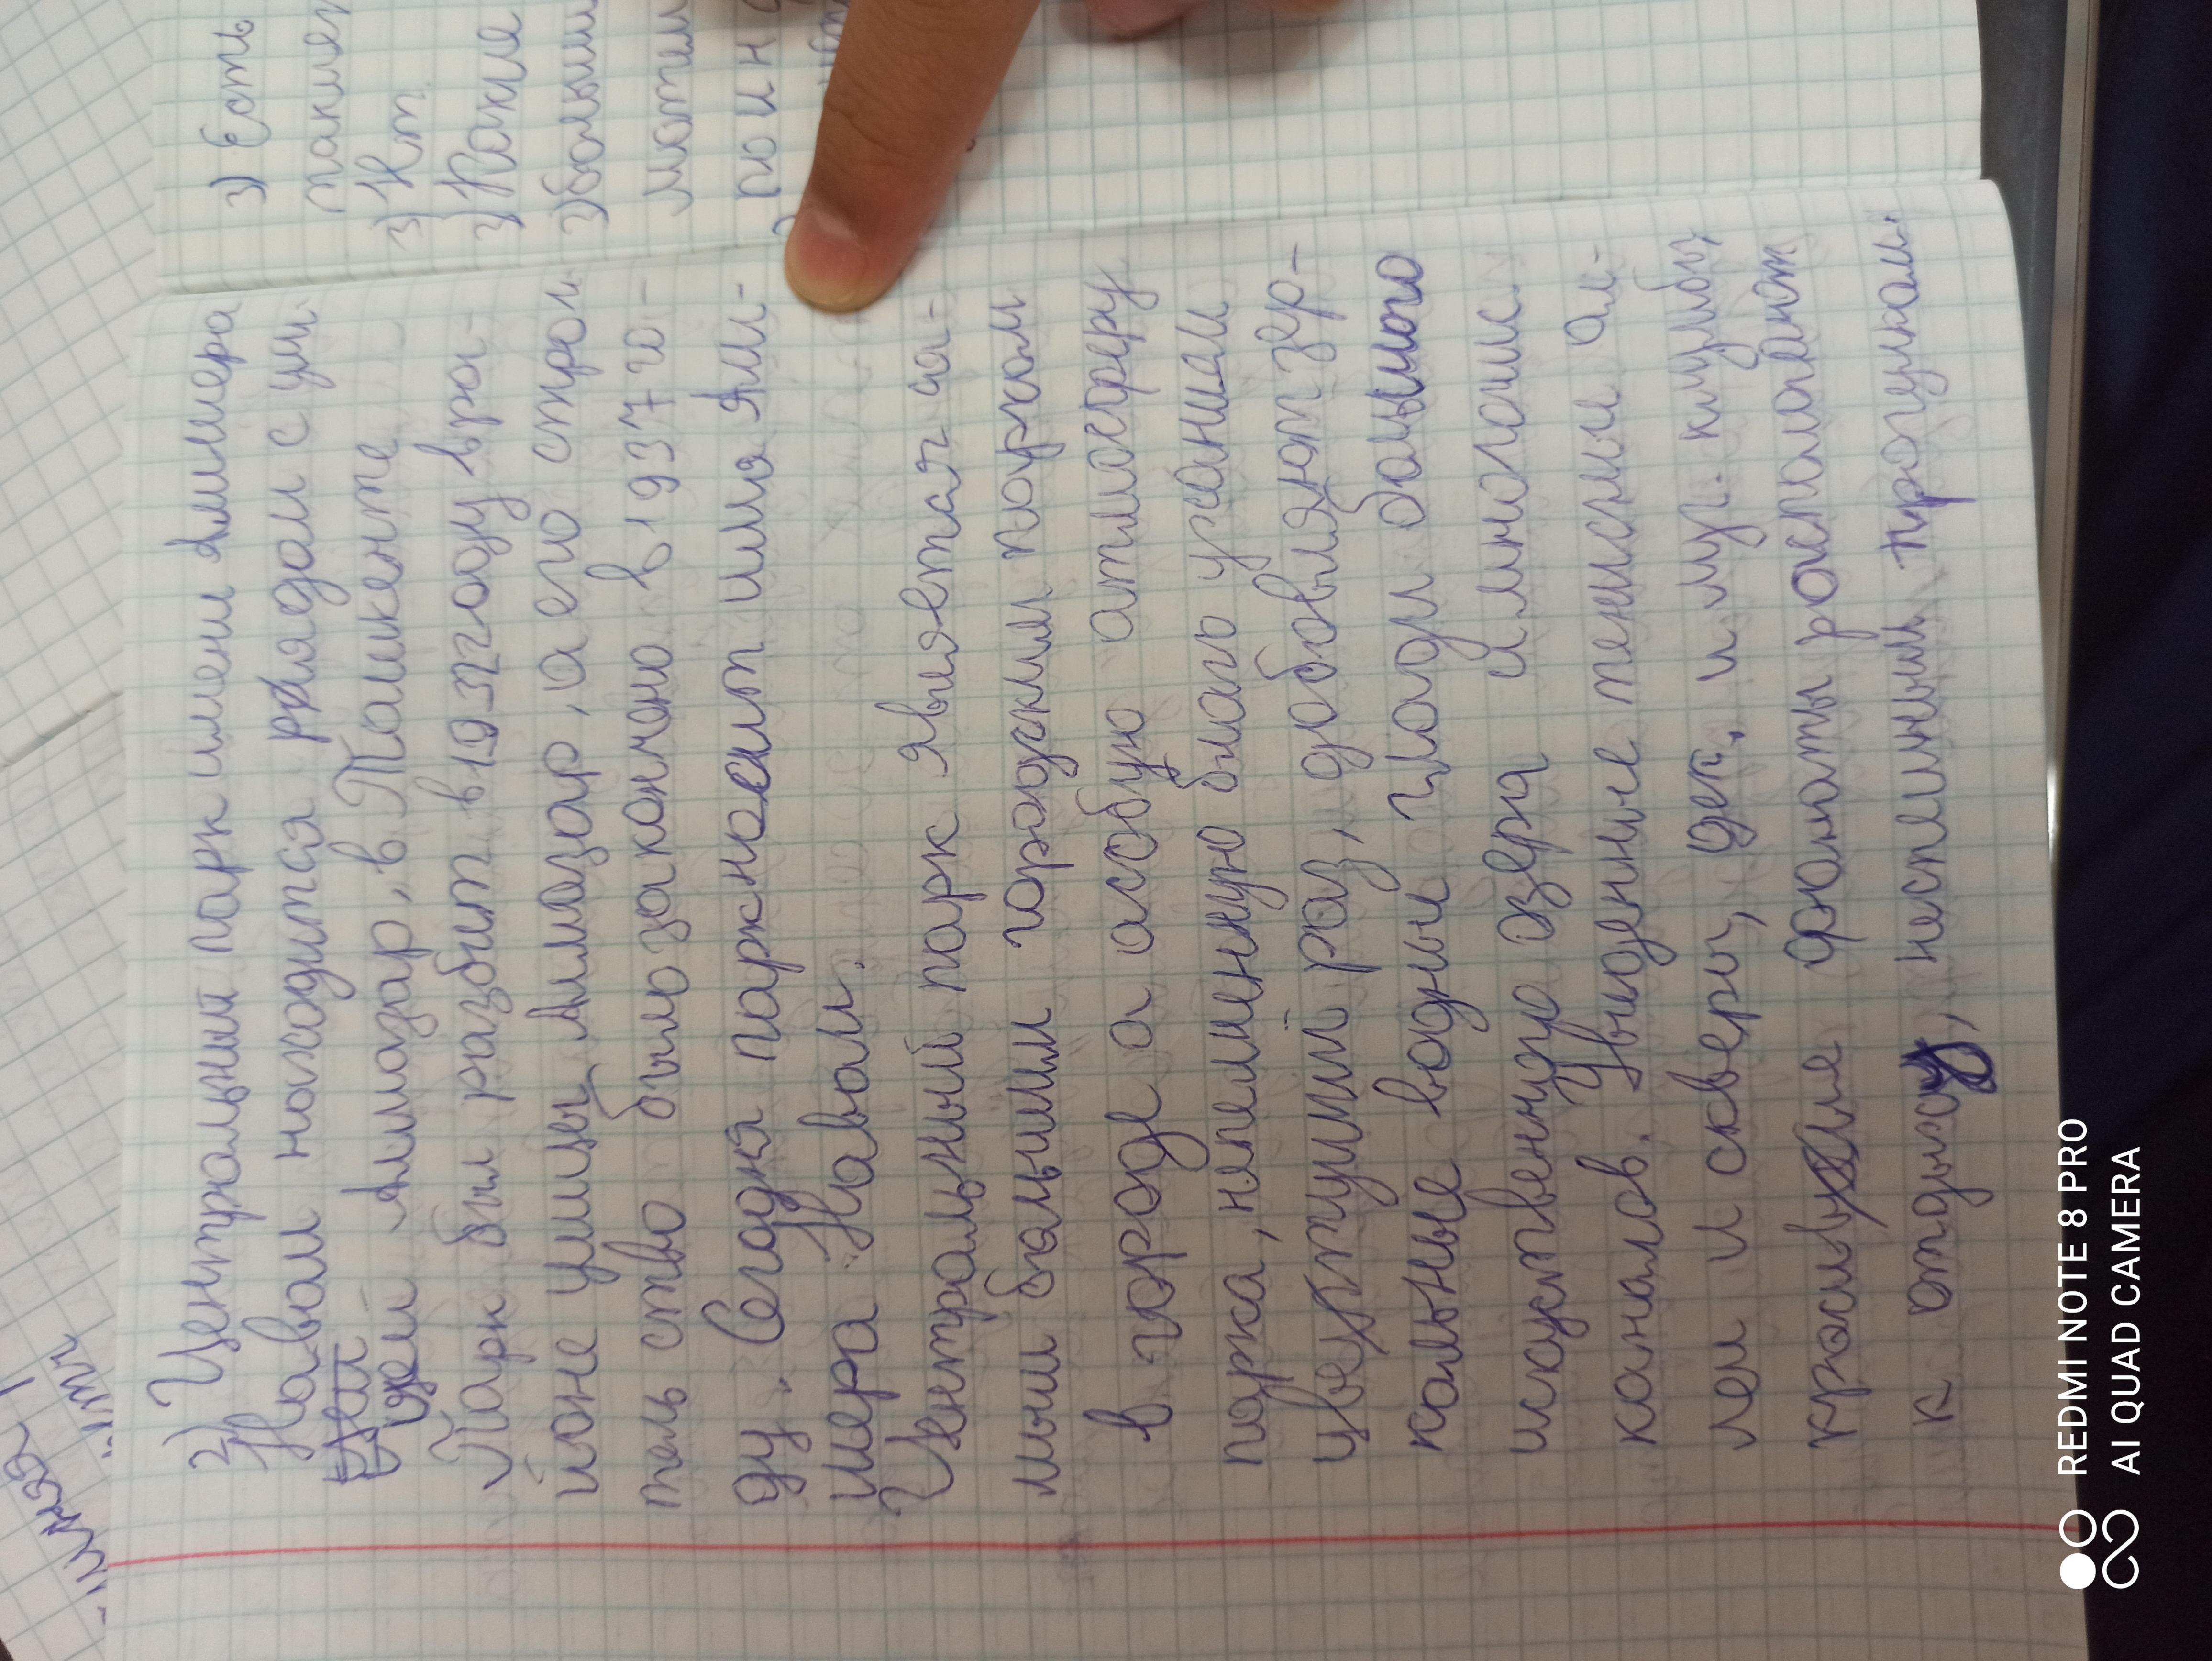 2) Центральный парк имени Алишера
Навои находится рядом с ули
цей Алмазар, в Ташкенте
Парк был разбит в 1932 году в ра-
йоне улицы Алмазар, а его строи
тель ство было закончено в 1937 го-
ду. Сегодня парк носит имя Али-
шера Навои.
Центральный парк явлеятся са-
мыи балшими городским поурком
в городе а асобую атмосферу
парка, непеменную благо уханиам
цветущими раз, добовляют зер-
кальные водныи глади балшого
искуственного озера и многочис
каналов. Увиоденные тенистыи ал-
леи и скверы, дек. и муз. клумбы
красивие фонтаны располагают
к отдыху, неспишным прогулкам.
3) Есть
такие
3) Нт.
3) Какие
3) больши
мотив
REDMI NOTE 8 PRO
AI QUAD CAMERA